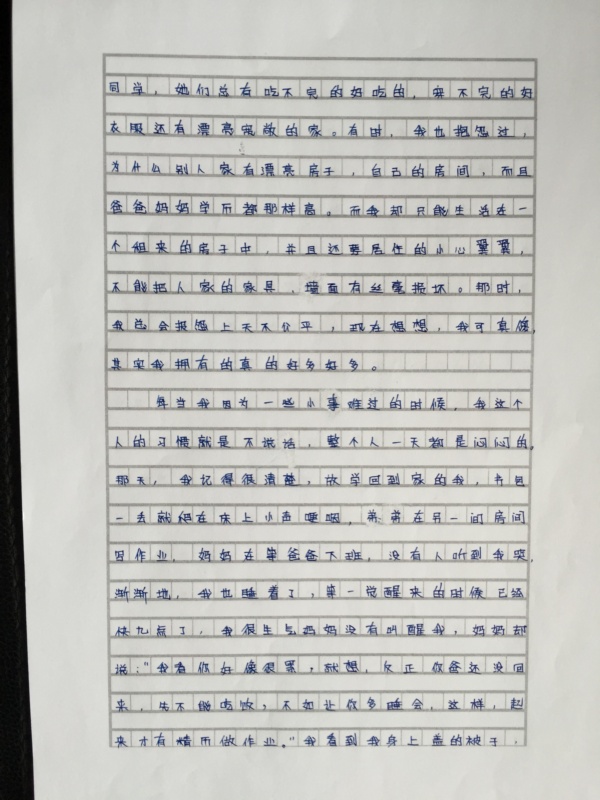 同学，她们总有吃不完的好吃的，穿不完的好
衣服还有漂亮宽敞的家。有时，我也抱怨过，
为什么别人家有漂亮房子，自己的房间，而且
爸爸妈妈学历都那样高。而我却只能生活在一
个租来的房子中，并且还要居住的小心翼翼，
不能把人家的家具、墙面有丝毫损坏。那时，
我总会报怨上天不公平，现在想想，我可真傻，
其实我拥有的真的好多好多。
每当我因为一些小事难过的时候，我这个
人的习惯就是不说话，整个人一天都是闷闷的。
那天，我记得很清楚，放学回到家的我，书包
一丢就趴在床上小声哽咽，弟弟在另一间房间
写作业，妈妈在等爸爸下班，没有人听到我哭，
渐渐地，我也睡着了，第一觉醒来的时候已经
快九点了，我很生气妈妈没有叫醒我，妈妈却
说："我看你好像很累，就想，反正你爸还没回
来，先不能吃饭，不如让你多睡会，这样，起
来才有精历做作业。"我看到我身上盖的被子，